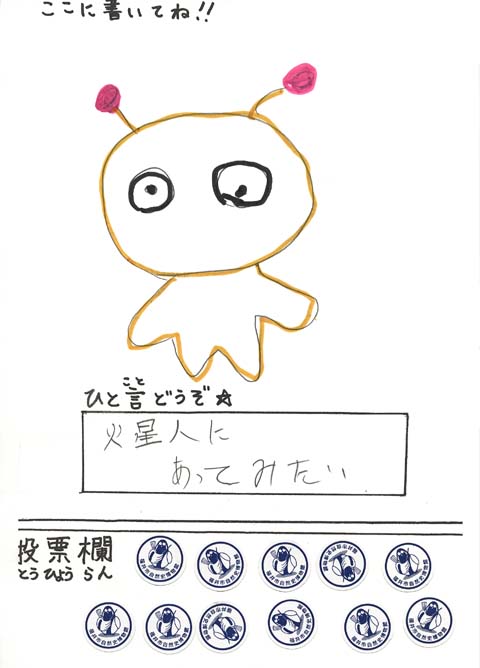 ここに書いてね!!
ひと言どうぞ☆
こと
火星人に
あってみたい
投票欄
とうひょうらん